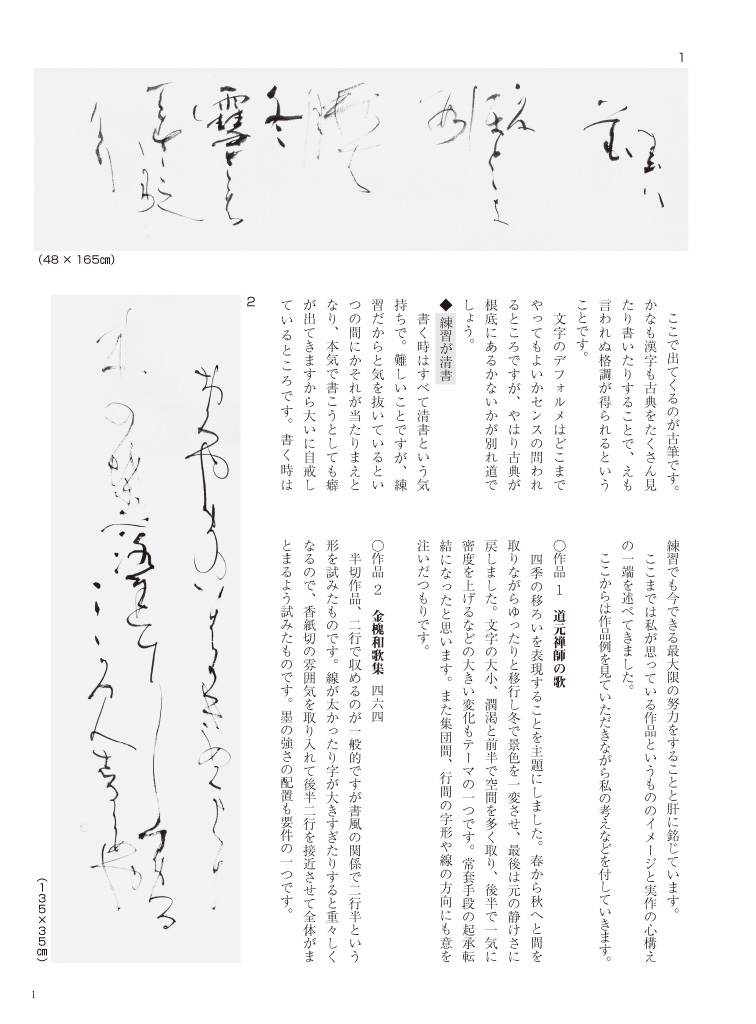 1
(48 × 165㎝)
ここで出てくるのが古筆です。
かなも漢字も古典をたくさん見
たり書いたりすることで、えも
言われぬ格調が得られるという
ことです。
文字のデフォルメはどこまで
やってもよいかセンスの問われ
るところですが、やはり古典が
根底にあるかないかが別れ道で
しょう。
◆練習が清書
書く時はすべて清書という気
持ちで。難しいことですが、練
習だからと気を抜いているとい
つの間にかそれが当たりまえと
なり、本気で書こうとしても癖
が出てきますから大いに自戒し
ているところです。書く時は
練習でも今できる最大限の努力をすることと肝に銘じています。
ここまでは私が思っている作品というもののイメージと実作の心構え
の一端を述べてきました。
ここからは作品例を見ていただきながら私の考えなどを付していきます。
○作品 1 道元禅師の歌
四季の移ろいを表現することを主題にしました。春から秋へと間を
取りながらゆったりと移行し冬で景色を一変させ、最後は元の静けさに
戻しました。文字の大小、潤渇と前半で空間を多く取り、後半で一気に
密度を上げるなどの大きい変化もテーマの一つです。常套手段の起承転
結になったと思います。また集団間、行間の字形や線の方向にも意を
注いだつもりです。
○作品 2 金槐和歌集 四六四
半切作品、二行で収めるのが一般的ですが書風の関係で二行半という
形を試みたものです。線が太かったり字が大きすぎたりすると重々しく
なるので、香紙切の雰囲気を取り入れて後半二行を接近させて全体がま
とまるよう試みたものです。墨の強さの配置も要件の一つです。
2
(135×35㎝)
1